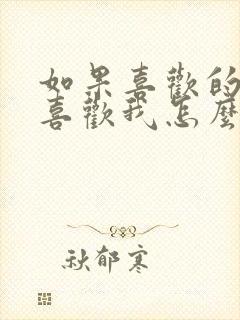 如果喜歡的
喜歡我怎麼
秋郁寒